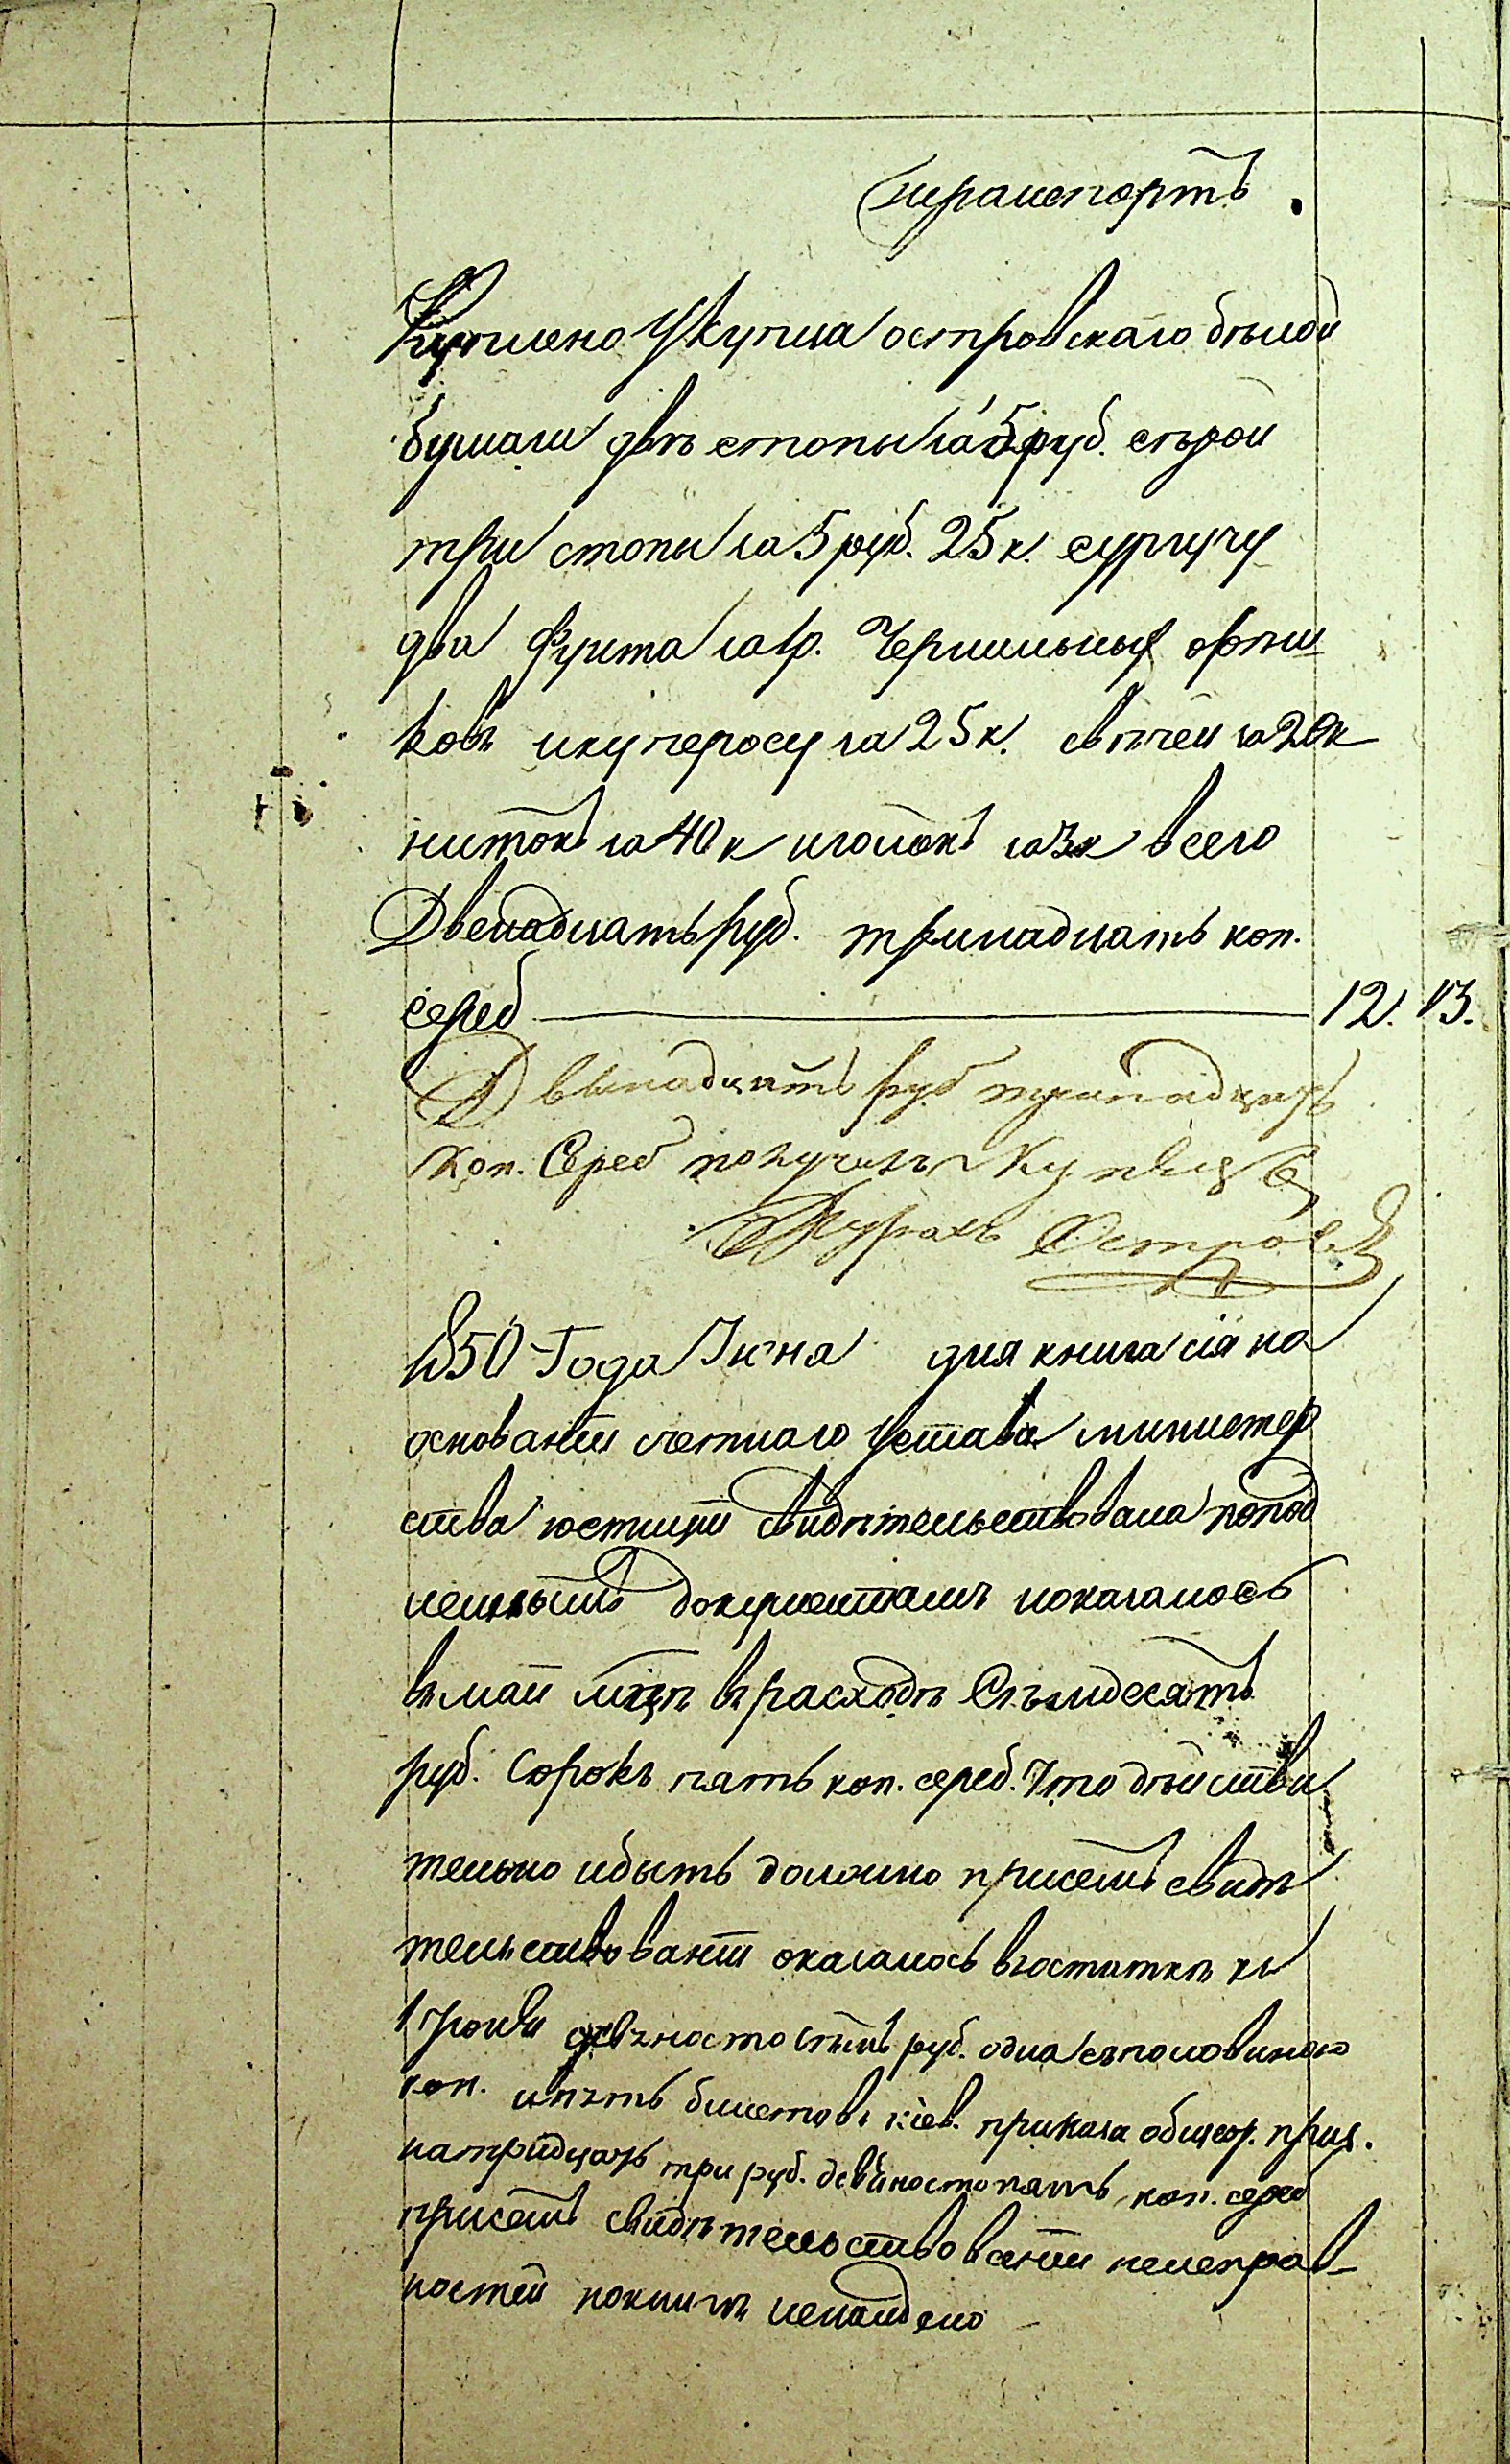 транспортъ.
Куплено у купца островскаго бѣлой
бумаги двѣ стопы за 5 руб. сѣрой
три стопы за 5 руб. 25 к. сургучу
два фунта за 1 р. Чернильныхъ орѣш-
ковъ и купоросу за 25 к. свѣчей за 20 к
нитокъ за 40 к иголокъ за 3 к всего
Двенадцать руб. тринадцать коп.
сереб 12. 13.
Двенадцать руб тринадцать
коп. Сереб получилъ Купецъ
1850 Года Іюня дня книга сія на
основаніи счетнаго устава министер
ства юстиціи свидѣтельствована по под
леннымъ документамъ показалось
въ маи мцѣ въ расходѣ Сѣмдесятъ
руб. Сорокъ пять коп. сереб. Что дѣйстви
тельно и быть должно при семъ свидѣ
тельствованіи оказалось въ остаткѣ къ
1 Іюня девяносто семь руб. одна съ половиною
коп. и пять билетовъ кіев. приказа общес. приз.
на тридцать три руб. девяносто пять коп. сереб
при семъ свидѣтельствованіи неисправ-
ностей по книгѣ ненайдено